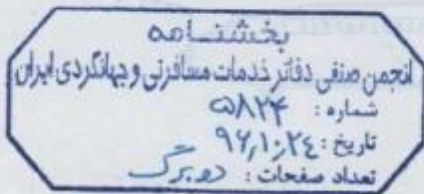 بخشنامه
انجمن صنفی دفاتر خدمات مسافرتی و جهانگردی ایران
شماره : ۵۸۲۴
تاریخ : ۹۶٫۱۰٫۲۴
تعداد صفحات : دو برگ